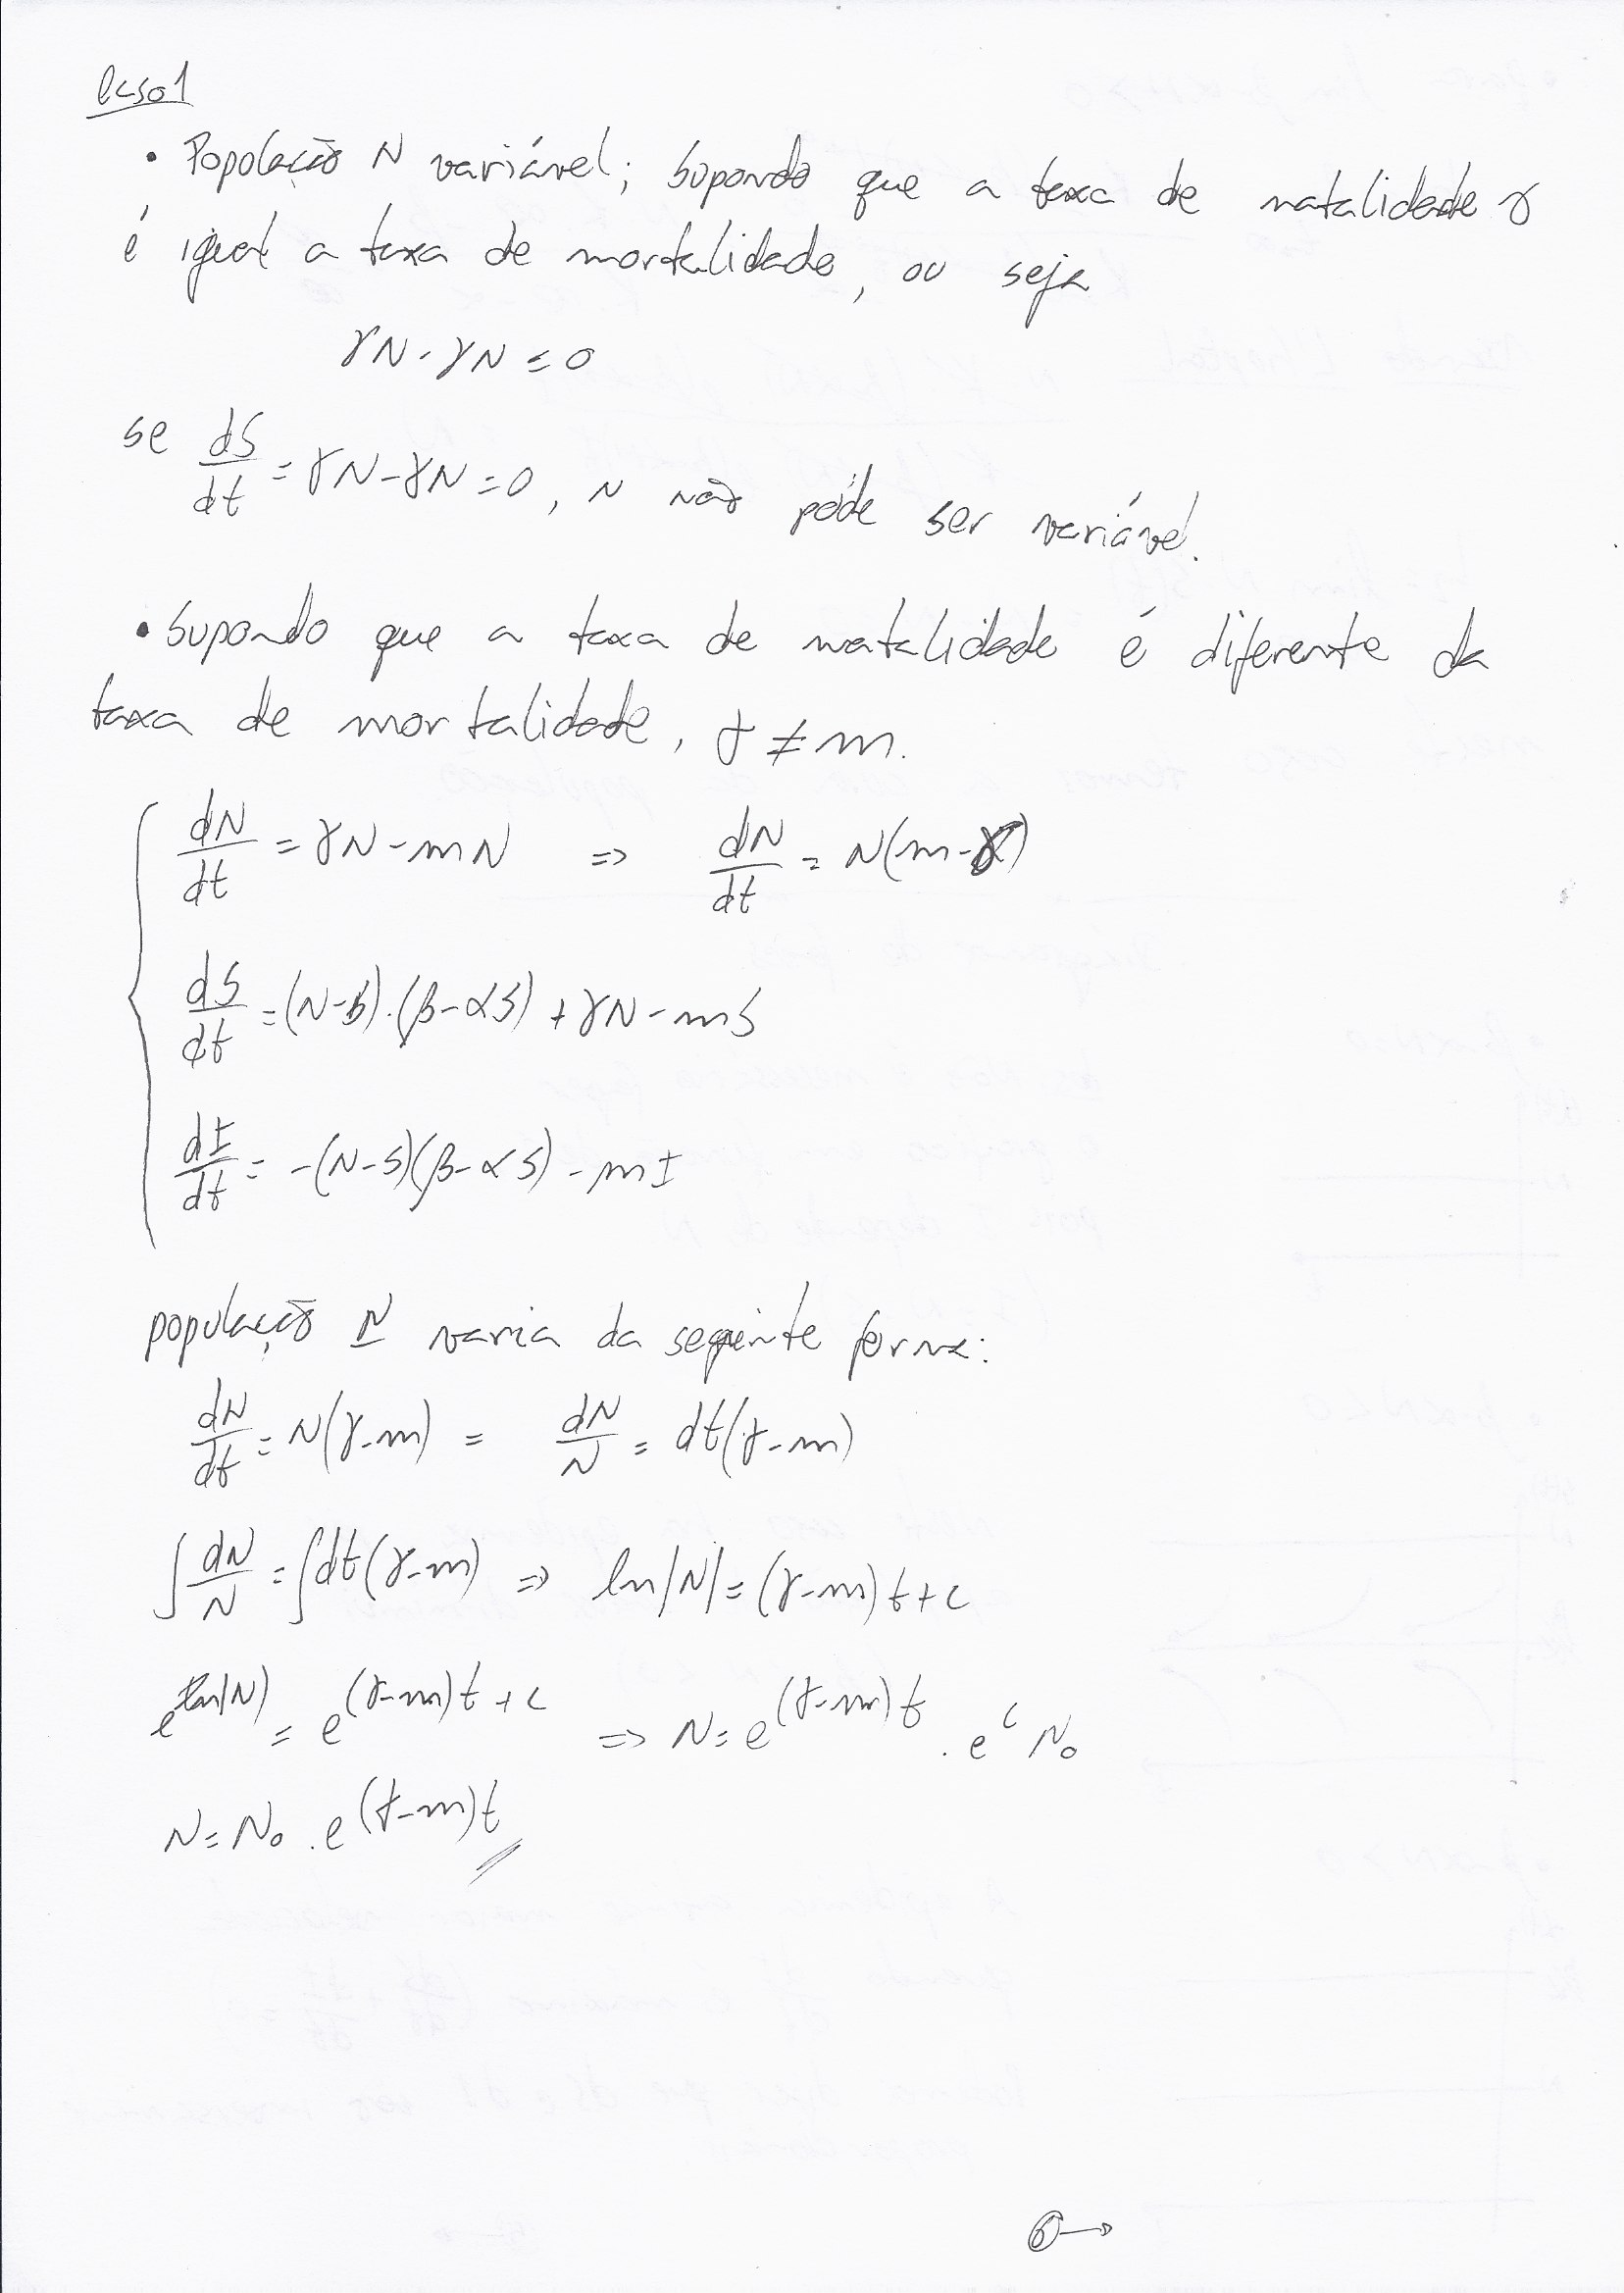 Caso 1
• População N variável; Supondo que a taxa de natalidade γ
é igual a taxa de mortalidade, ou seja
γN - γN = 0
se dS/dt = γN - γN = 0, N não pode ser variável.
• Supondo que a taxa de natalidade é diferente da
taxa de mortalidade, γ ≠ m.
dN/dt = γN - mN => dN/dt = N(m-γ)
dS/dt = (N-S).(β-αS) + γN - mS
dI/dt = -(N-S)(β-αS) - mI
população N varia da seguinte forma:
dN/dt = N(γ-m) = dN/N = dt(γ-m)
∫dN/N = ∫dt(γ-m) => ln|N| = (γ-m)t+c
e^ln|N| = e^(γ-m)t+c => N = e^(γ-m)t . e^c N₀
N = N₀ . e^(γ-m)t
6→